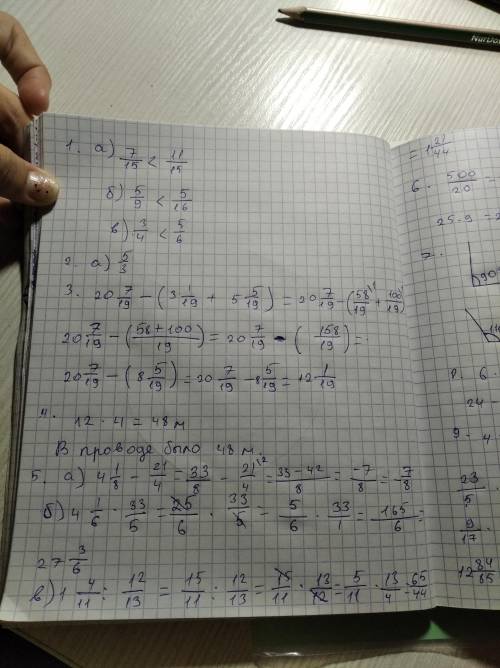 1. а) 7/15 < 11/15
б) 5/9 < 5/16
в) 3/4 < 5/6
2. а) 5/3
3. 20 7/19 − (3 1/19 + 5 5/19) = 20 7/19 − (58/19 + 100/19)
20 7/19 − (58+100/19) = 20 7/19 − (158/19) =
20 7/19 − (8 5/19) = 20 7/19 − 8 5/19 = 12 1/19
4. 12 · 4 = 48 м
В проводе было 48 м.
5. а) 4 1/8 − 21/4 = 33/8 − 21/4 = 33−42/8 = −7/8 = 7/8
б) 4 1/6 · 33/5 = 25/6 · 33/5 = 5/6 · 33/1 = 165/6 =
27 3/6
в) 1 4/11 : 12/13 = 15/11 : 12/13 = 15/11 · 13/12 = 5/11 · 13/4 = 65/44
= 1 21/44
6. 500/20 =
25 · 9 = 2
7.
90°
6 ·
24 −
9 · 4
23/5
9/17 ·
12 84/85